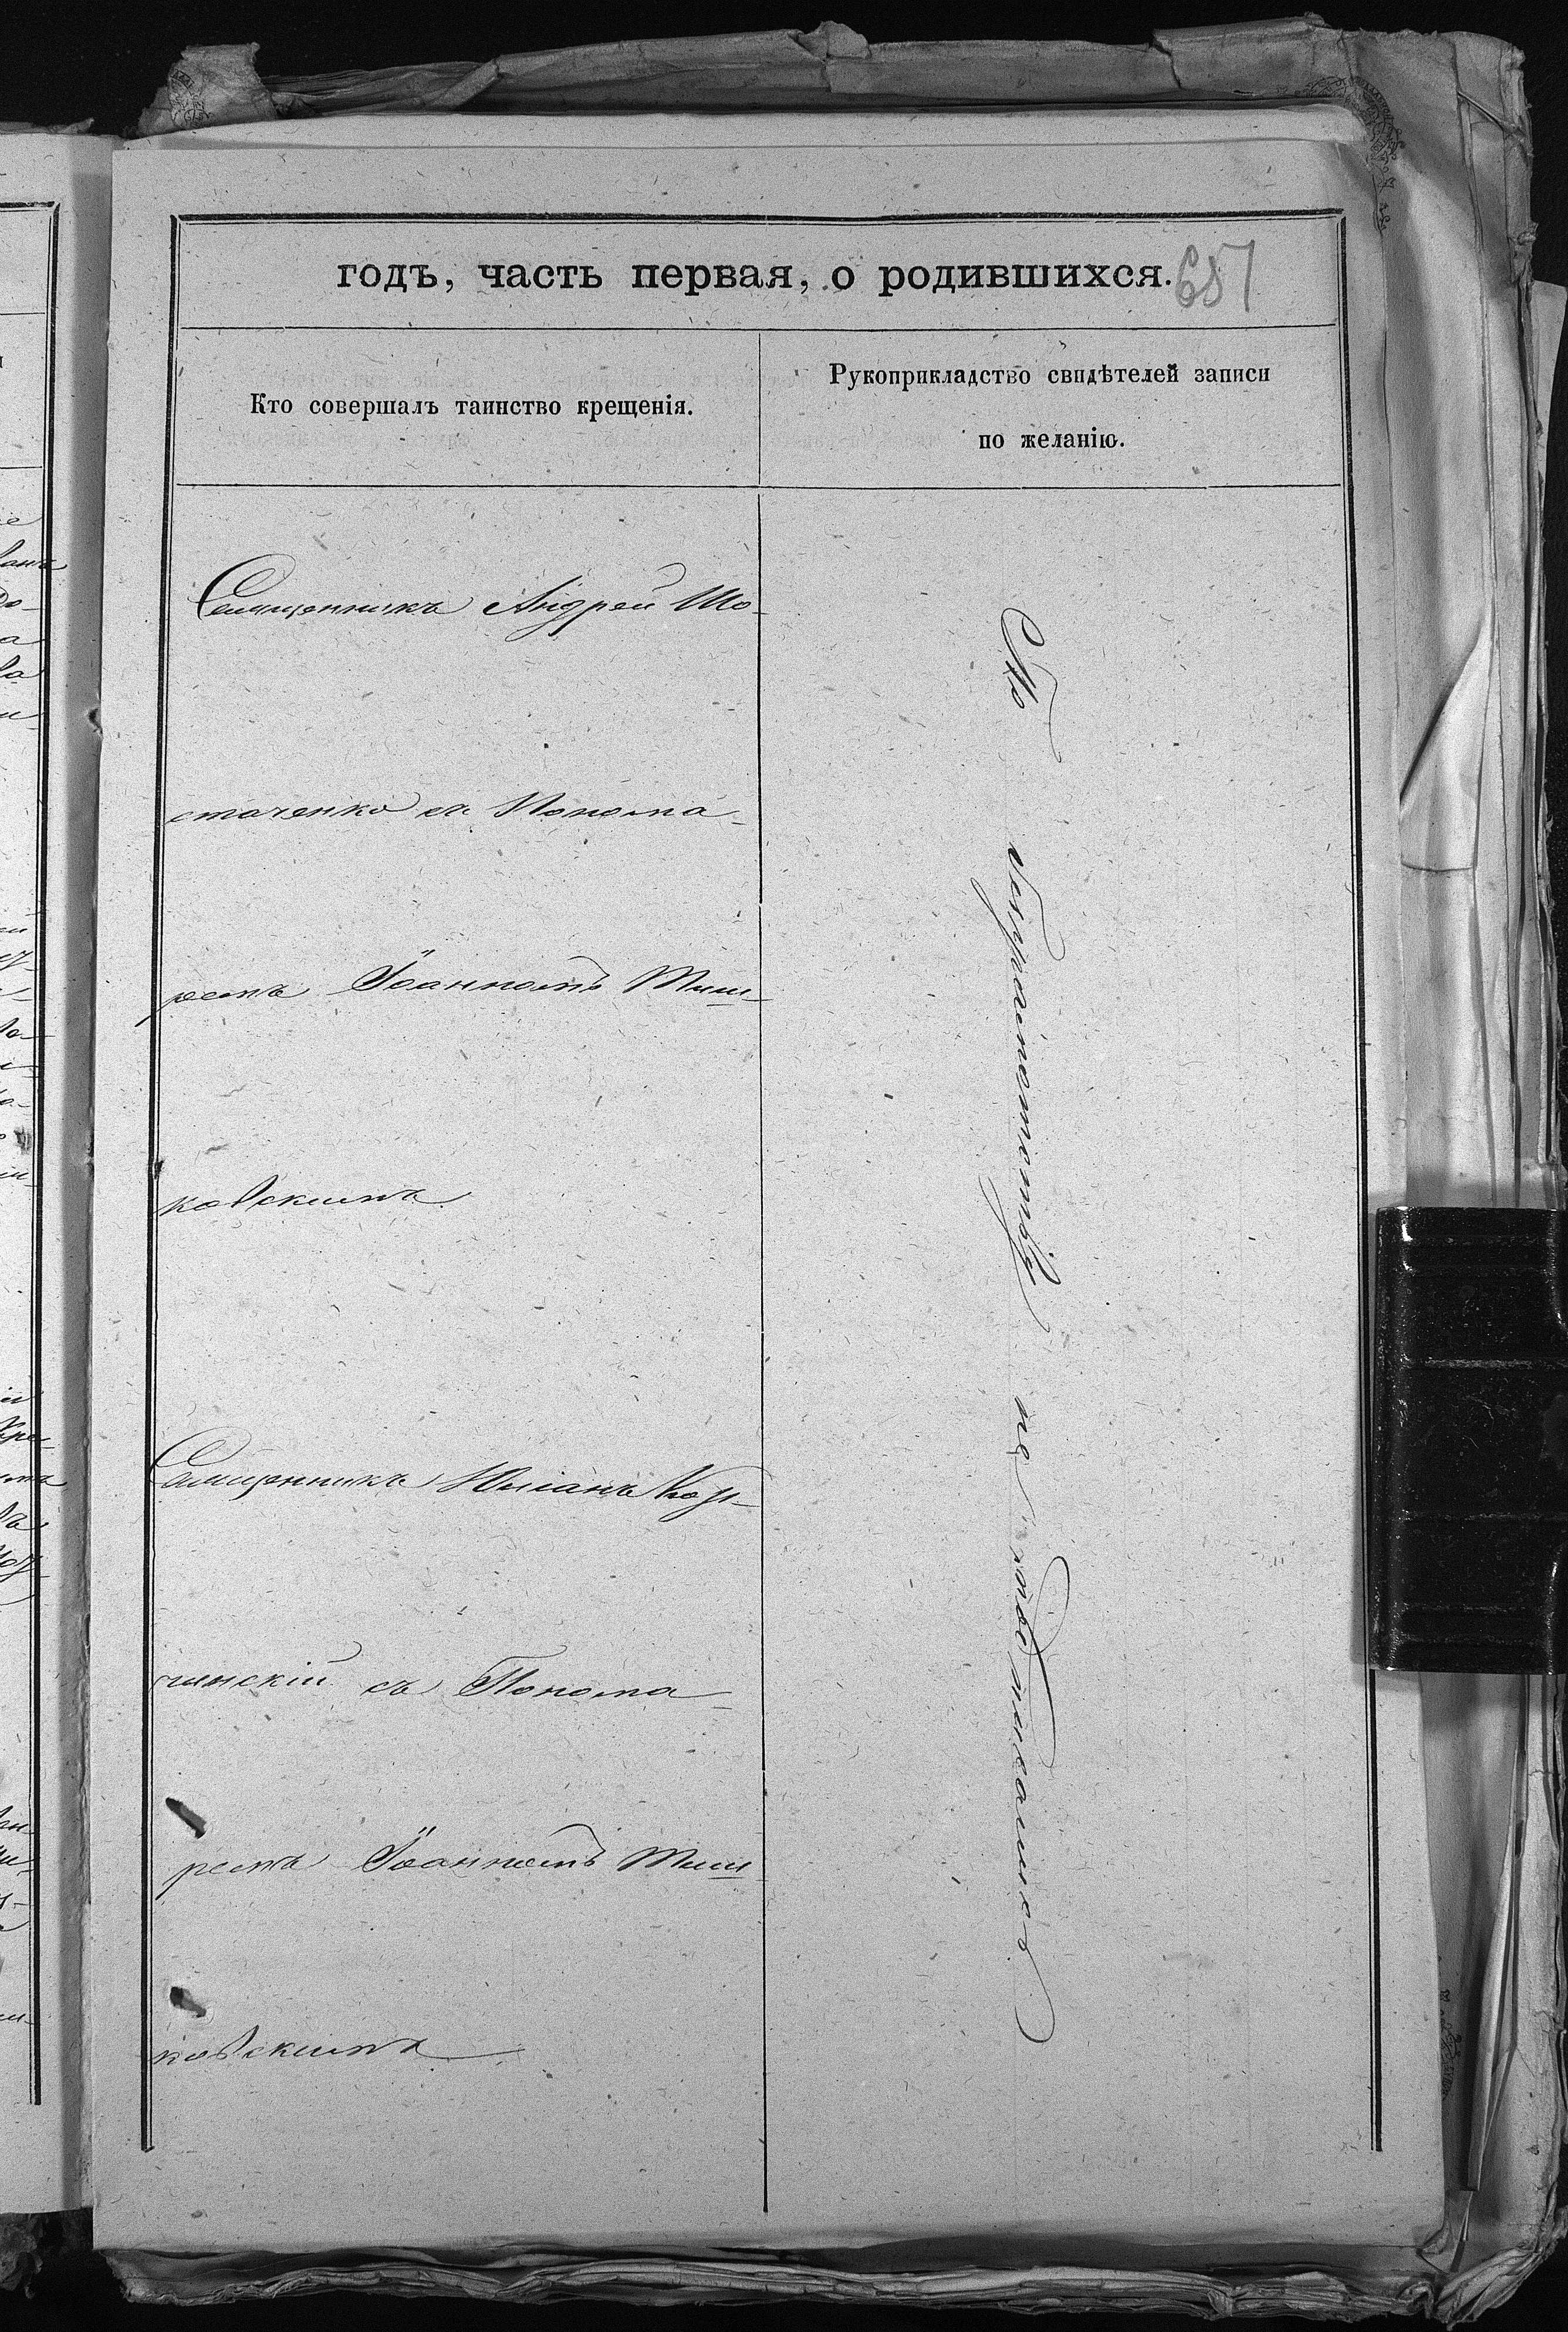 годъ, часть первая, о родившихся. 651
Кто совершалъ таинство крещенія.
Рукоприкладство свидѣтелей записи
по желанію.
Священникъ Андрей Шо-
стаченко съ Понома-
ремъ Іоанномъ Тиш-
ковскимъ
Священникъ Юліанъ
чинскій съ Понома-
ремъ Іоанномъ Тиш
ковскимъ
По неграмотству не